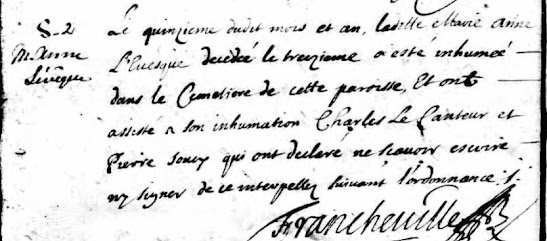 S. 2
M. Anne
Lévêque
Le quinzieme dudit mois et an, ladette Marie Anne
L'Evesque decedée le treizieme a esté inhumée
dans le Cemetiere de cette paroisse, Et ont
assisté a son inhumation Charles Le Canteur et
Pierre Soucy qui ont declaré ne scavoir escrire
ny signer de ce interpellez suivant l'ordonnance ·/·
Francheville